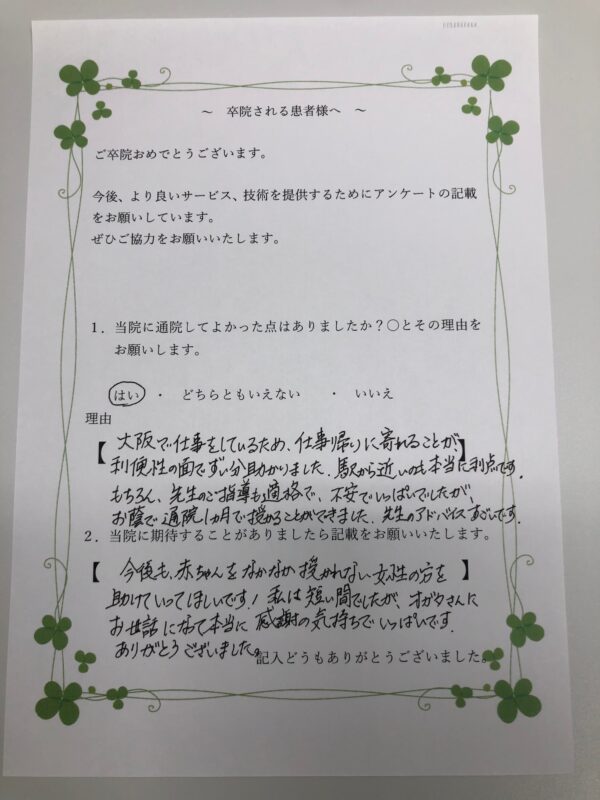 ～ 卒院される患者様へ ～
ご卒院おめでとうございます。
今後、より良いサービス、技術を提供するためにアンケートの記載
をお願いしています。
ぜひご協力をお願いいたします。
1．当院に通院してよかった点はありましたか？○とその理由を
お願いします。
はい ・ どちらともいえない ・ いいえ
理由
【 大阪で仕事をしているため、仕事帰りに寄れることが、 】
利便性の面でずい分助かりました。駅から近いのも本当に利点です。
もちろん、先生のご指導も適格で、不安でいっぱいでしたが、
お蔭で通院1ヵ月で授かることができました。先生のアドバイスすごいです。
2．当院に期待することがありましたら記載をお願いいたします。
【 今後も、赤ちゃんをなかなか授かれない女性の方を 】
助けていってほしいです！私は短い間でしたが、オガタさんに
お世話になって本当に感謝の気持ちでいっぱいです。
ありがとうございました。
記入どうもありがとうございました。